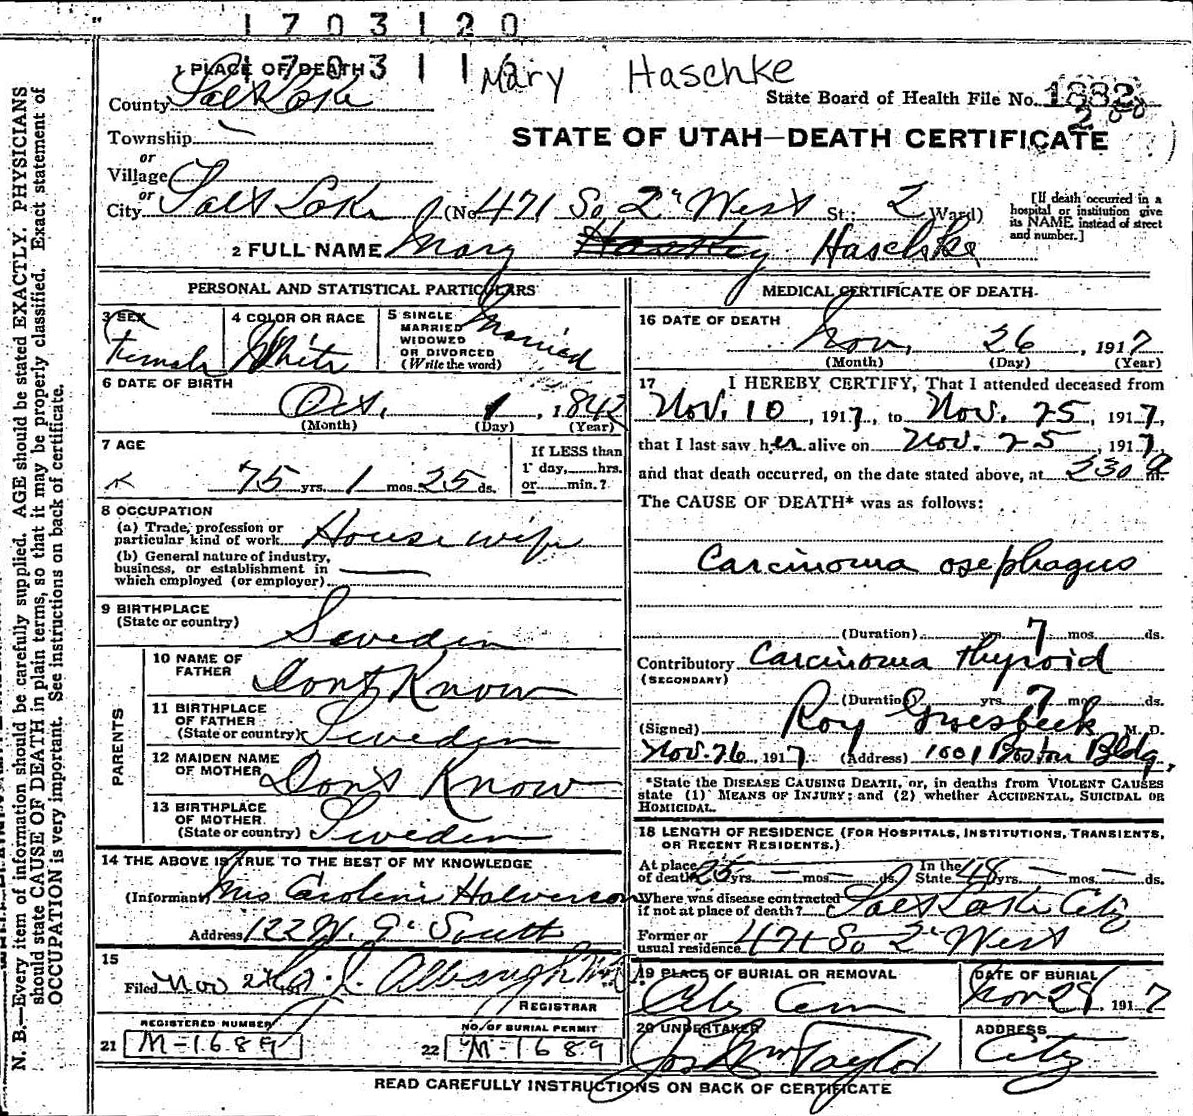 1703120
1703112
Mary Haschke
1 PLACE OF DEATH
County Salt Lake
State Board of Health File No. 1882
Township
or
Village
STATE OF UTAH—DEATH CERTIFICATE
or
City Salt Lake (No. 471 So 2" West St.; 2 Ward)
[If death occurred in a hospital or institution give its NAME instead of street and number.]
2 FULL NAME Mary Haschke
PERSONAL AND STATISTICAL PARTICULARS
3 SEX
Female
4 COLOR OR RACE
White
5 SINGLE
MARRIED
WIDOWED
OR DIVORCED
(Write the word)
Married
6 DATE OF BIRTH
Oct. 1, 1842
(Month) (Day) (Year)
7 AGE
75 yrs. 1 mos. 25 ds.
If LESS than
1 day, hrs.
or min.?
8 OCCUPATION
(a) Trade, profession or
particular kind of work Housewife
(b) General nature of industry,
business, or establishment in
which employed (or employer)
9 BIRTHPLACE
(State or country) Sweden
PARENTS
10 NAME OF
FATHER Dont Know
11 BIRTHPLACE
OF FATHER
(State or country) Sweden
12 MAIDEN NAME
OF MOTHER Dont Know
13 BIRTHPLACE
OF MOTHER
(State or country) Sweden
14 THE ABOVE IS TRUE TO THE BEST OF MY KNOWLEDGE
(Informant) Mrs Caroline Halverson
Address 122 W. 9" South
15
Filed Nov
REGISTRAR
REGISTERED NUMBER
21 M-1689
NO. OF BURIAL PERMIT
22 M-1689
MEDICAL CERTIFICATE OF DEATH
16 DATE OF DEATH
Nov. 26, 1917
(Month) (Day) (Year)
17 I HEREBY CERTIFY, That I attended deceased from
Nov. 10, 1917, to Nov. 25, 1917,
that I last saw her alive on Nov. 25, 1917,
and that death occurred, on the date stated above, at 230 a m.
The CAUSE OF DEATH* was as follows:
Carcinoma osephagus
(Duration) yrs. 7 mos. ds.
Contributory Carcinoma thyroid
(SECONDARY)
(Duration) yrs. 7 mos. ds.
(Signed) Roy Groesbeck M. D.
Nov. 26, 1917 (Address) 1001 Boston Bldg.
*State the DISEASE CAUSING DEATH, or, in deaths from VIOLENT CAUSES
state (1) MEANS OF INJURY; and (2) whether ACCIDENTAL, SUICIDAL OR
HOMICIDAL.
18 LENGTH OF RESIDENCE (FOR HOSPITALS, INSTITUTIONS, TRANSIENTS,
OR RECENT RESIDENTS.)
At place
of death 25 yrs. — mos. — ds.
In the
State 48 yrs. — mos. — ds.
Where was disease contracted
if not at place of death? Salt Lake City
Former or
usual residence 471 So 2" West
19 PLACE OF BURIAL OR REMOVAL
City Cem
DATE OF BURIAL
Nov 29, 1917
20 UNDERTAKER
Jos Wm Taylor
ADDRESS
City
READ CAREFULLY INSTRUCTIONS ON BACK OF CERTIFICATE
N. B.—Every item of information should be carefully supplied. AGE should be stated EXACTLY. PHYSICIANS
should state CAUSE OF DEATH in plain terms, so that it may be properly classified. Exact statement of
OCCUPATION is very important. See instructions on back of certificate.